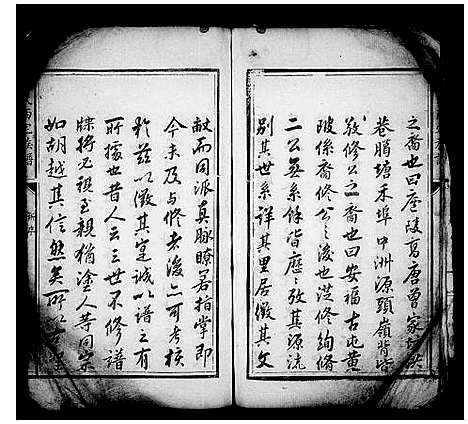 之裔也曰廬陵高唐曾家
巷腊塘禾埠中洲源頭嶺背皆
敎修公之裔也曰安福古屯黄
陂係裔修公之後也從修絢修
二公無系餘皆歷之攷其源流
别其世系詳其里居徵其文
献而同派真脉瞭若指掌即
今未及与修者後亦可考核
於兹以徵其寔誠以譜之有
所據也昔人云三世不修譜
牒将必視至親猶塗人等同宗
如胡越其信然矣所以